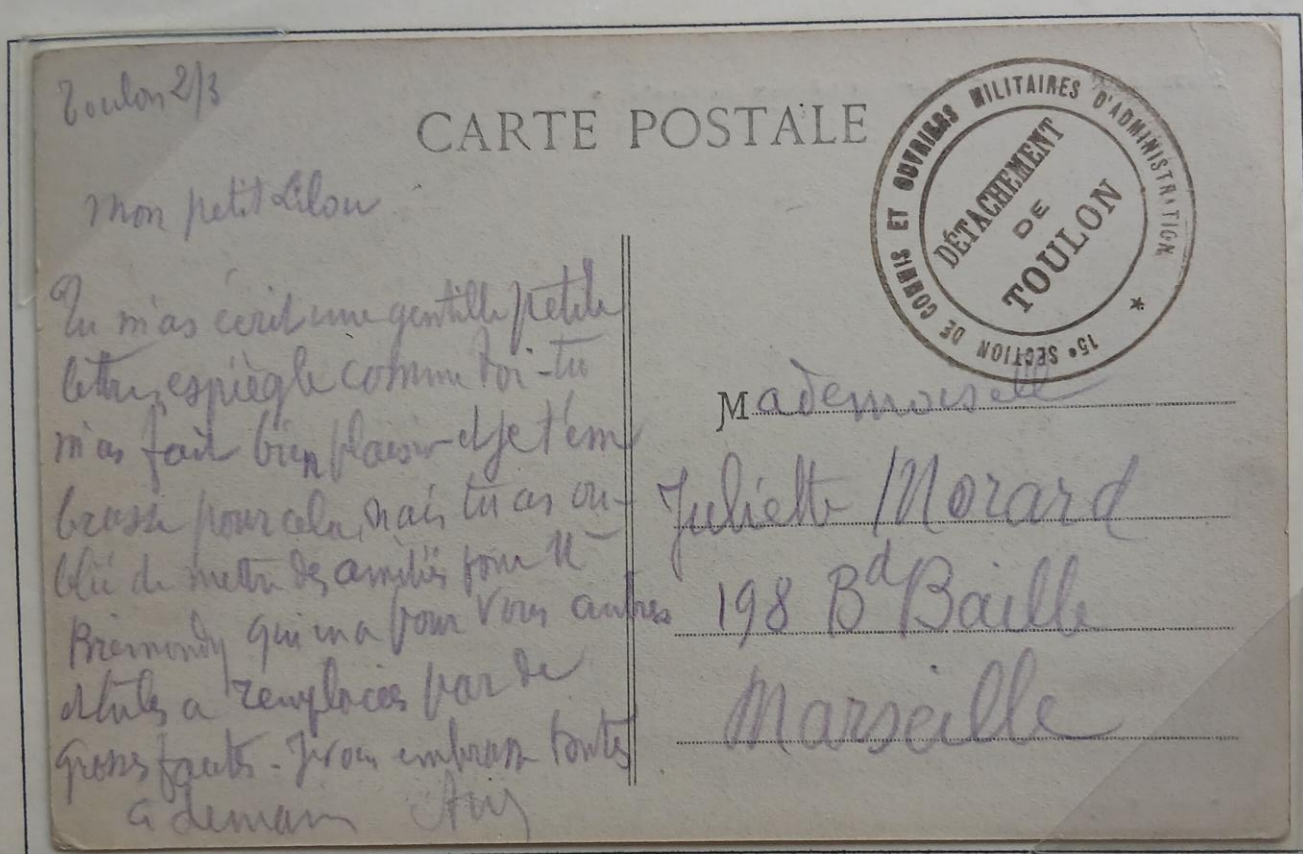 Toulon 2/3
CARTE POSTALE
15e SECTION DE COMMIS ET OUVRIERS MILITAIRES D'ADMINISTRATION
DÉTACHEMENT
DE
TOULON
mon petit Lilou
Tu m'as écrit une gentille petite
lettre, espiègle comme toi - tu
m'as fait bien plaisir et je t'em
brasse pour cela, mais tu as ou-
blié de mettre des amitiés pour
qui en a pour vous autres
et tu les a remplacées par de
grosses fautes - Je vous embrasse toutes
a demain
Mademoiselle
Juliette Morard
198 Bd Baille
Marseille